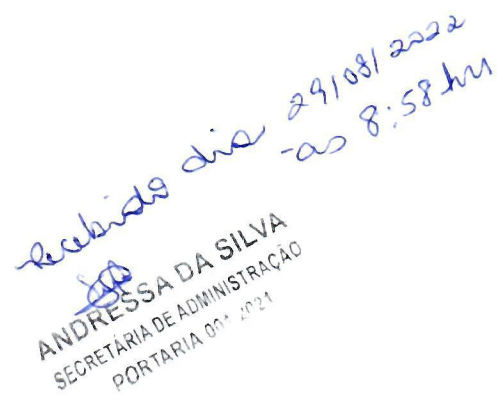 Recebido dia 29/08/2022
-as 8:58 hrs
ANDRESSA DA SILVA
SECRETÁRIA DE ADMINISTRAÇÃO
PORTARIA